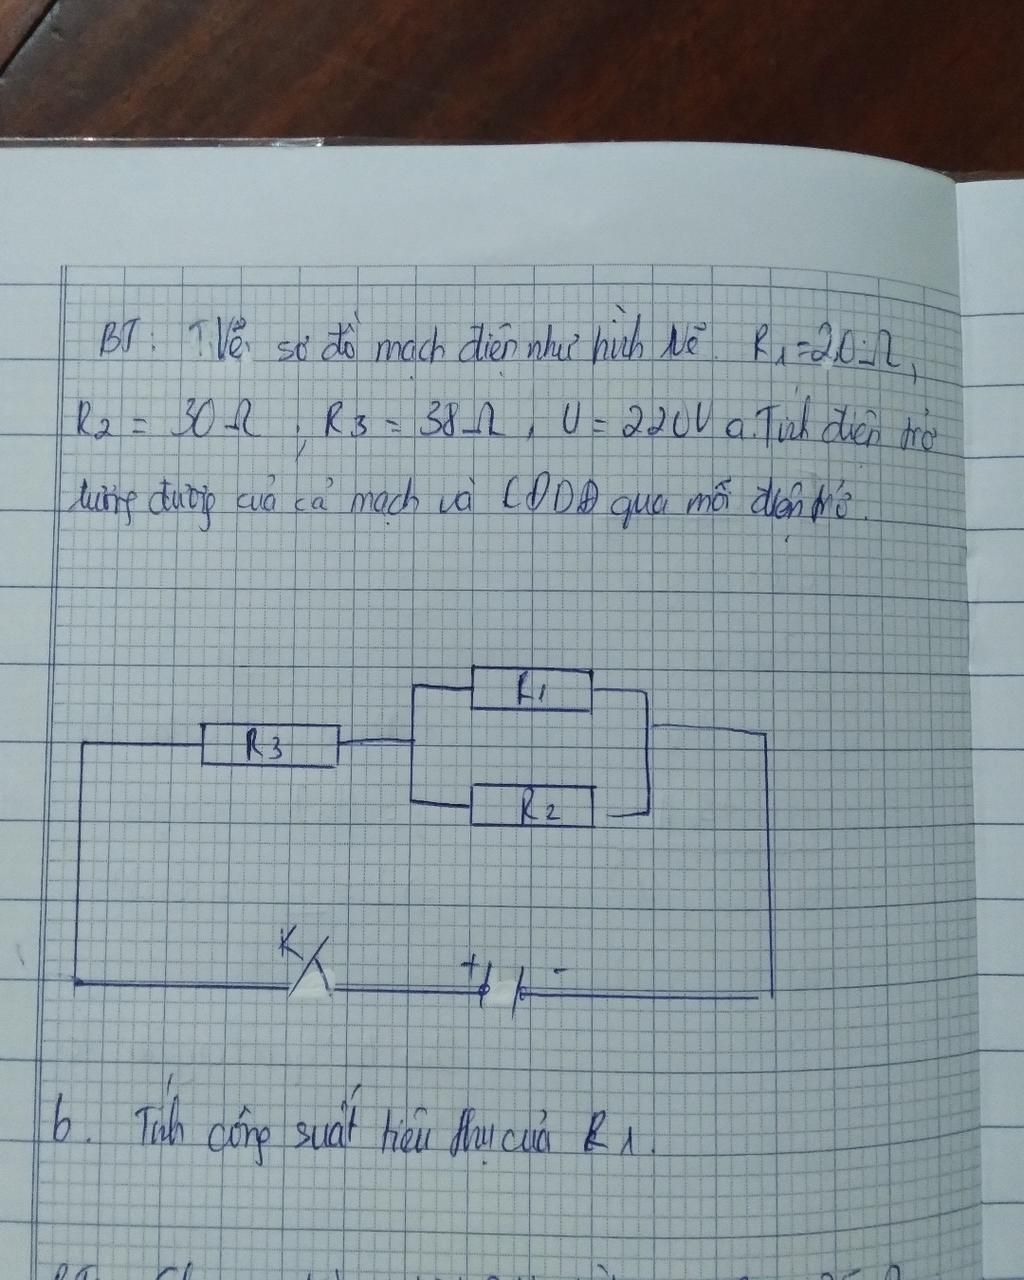 BT: 1. Vẽ sơ đồ mạch điện như hình vẽ. R1 = 20Ω,
R2 = 30Ω; R3 = 38Ω, U = 220V a. Tính điện trở
tương đương của cả mạch và CĐDĐ qua mỗi điện trở.
R1
R3
R2
K
+ -
b. Tính công suất tiêu thụ của R1.